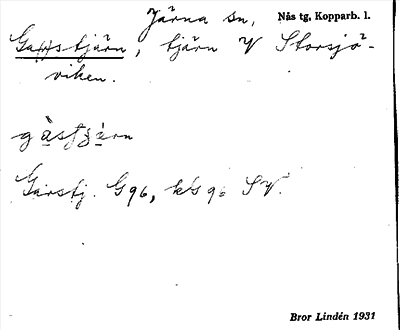 Järna sn, Nås tg, Kopparb. l.
Ga(r)stjärn, tjärn V Storsjö-
viken.
Garstj. G96, ks 90 SV.
Bror Lindén 1931